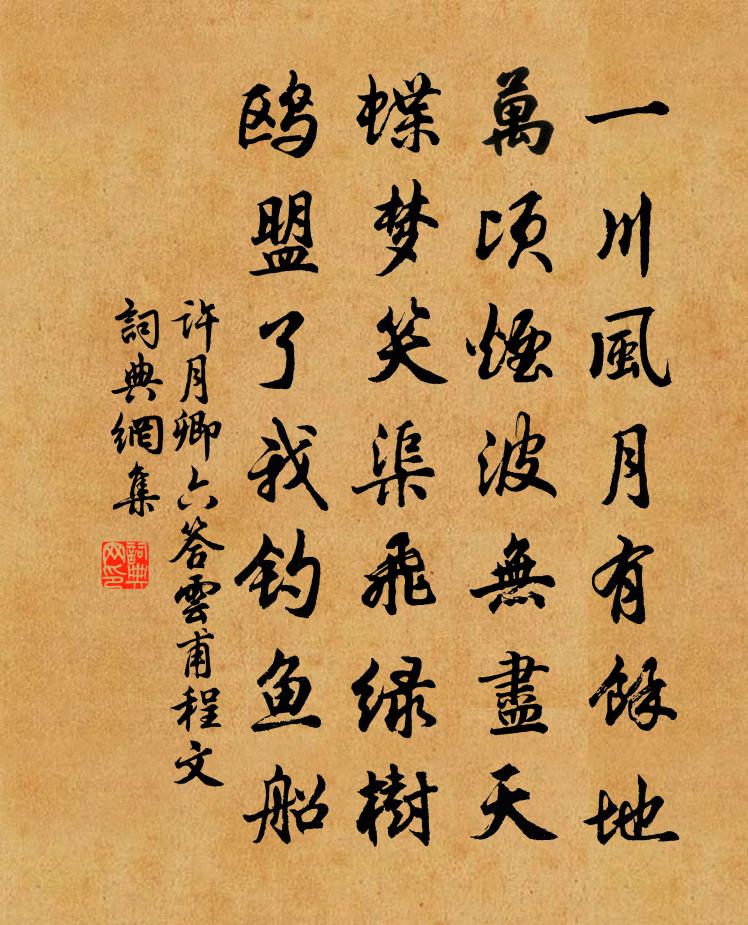 一川風月有餘地
萬頃煙波無盡天
蝶梦笑渠飛绿樹
鸥盟了我钓鱼船
許月卿六答雲甫程文
詞典網集
詞典网印